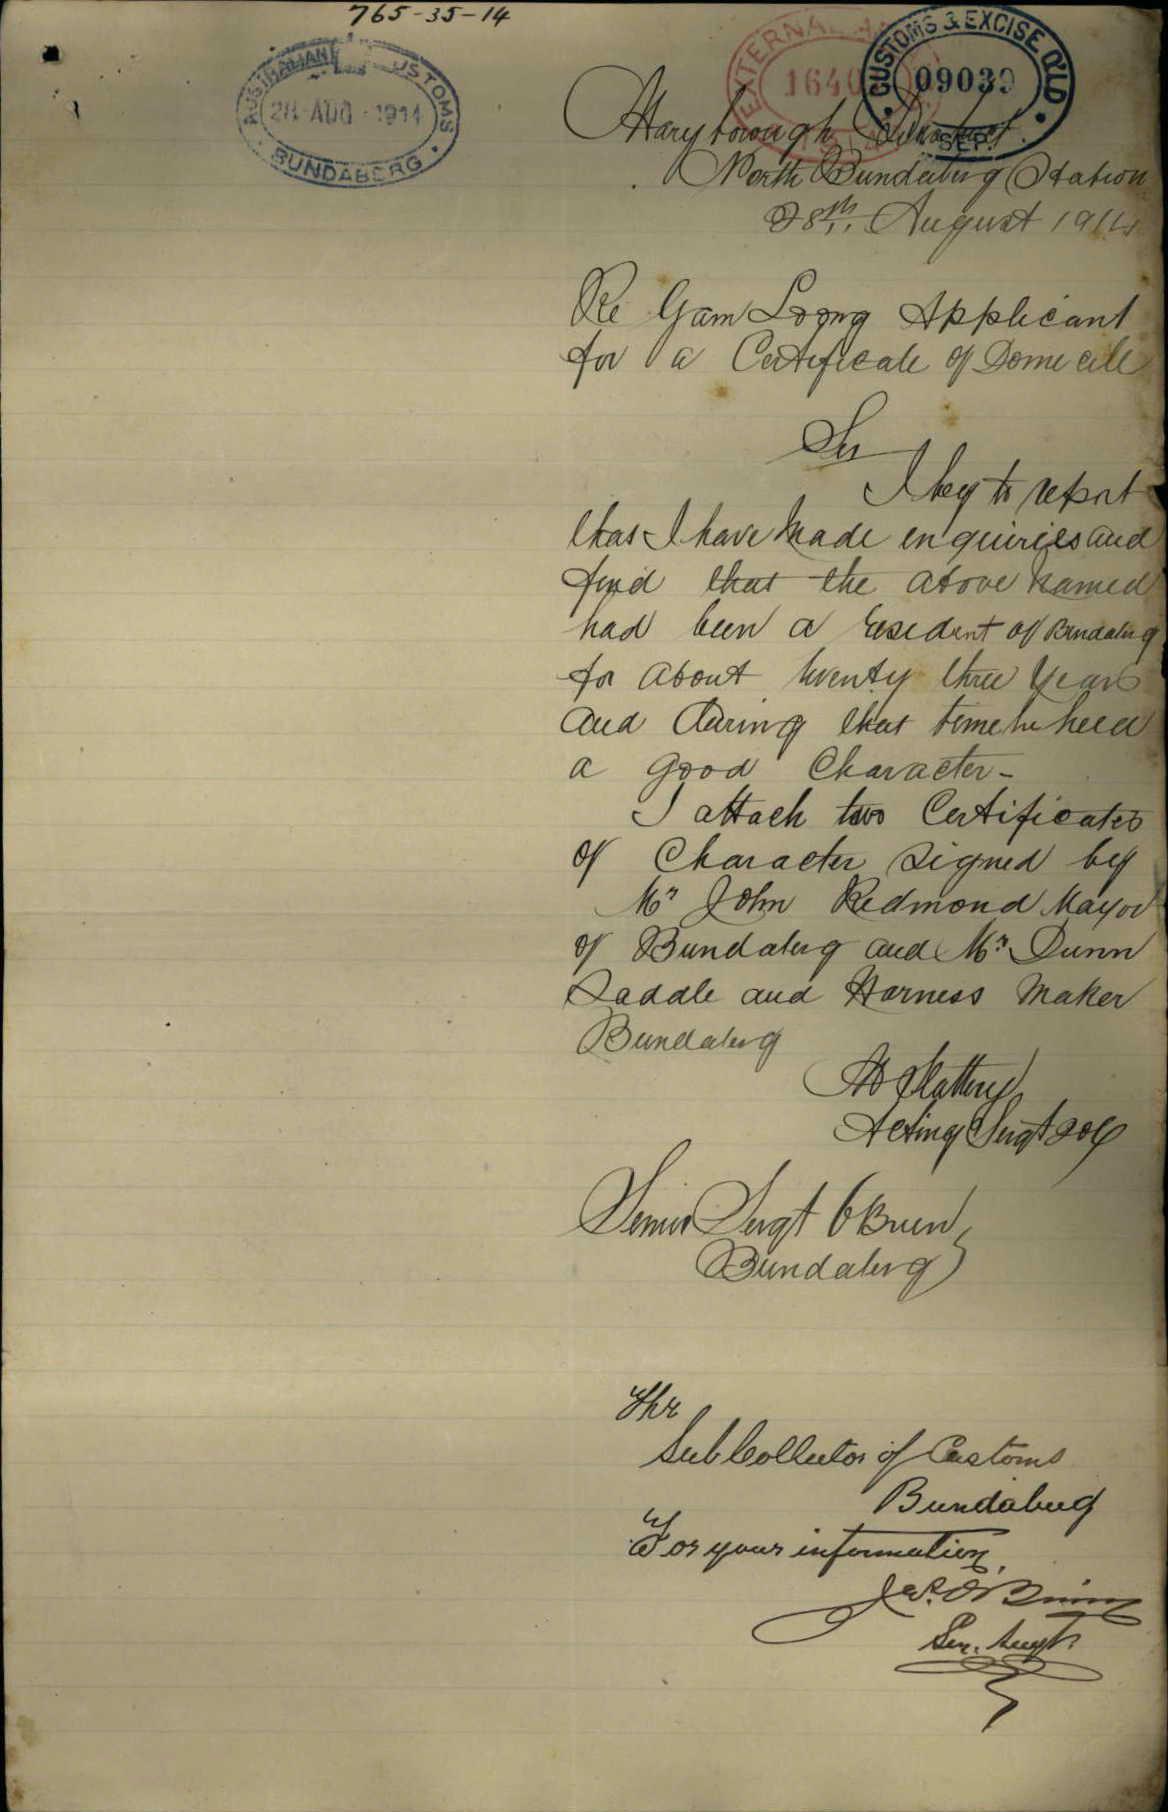 765-35-14
AUSTRALIAN CUSTOMS
28 AUG 1914
BUNDABERG
EXTERNAL
1640
CUSTOMS & EXCISE Q'LD
09039
SEP.
Maryborough District
North Bundaberg Station
28th August 1914
Re Gam Loong Applicant
for a Certificate of Domicile
Sir
I beg to report
that I have made enquiries and
find that the above named
had been a resident of Bundaberg
for about twenty three years
and during that time he held
a good Character -
I attach two Certificates
of Character signed by
Mr John Redmond Mayor
of Bundaberg and Mr Dunn
Saddle and Harness Maker
Bundaberg
Slattery
Acting Sergt 206
Senior Sergt O'Brien
Bundaberg
The
Sub Collector of Customs
Bundaberg
For your information.
Jas. O'Brien
Sen. Sergt.